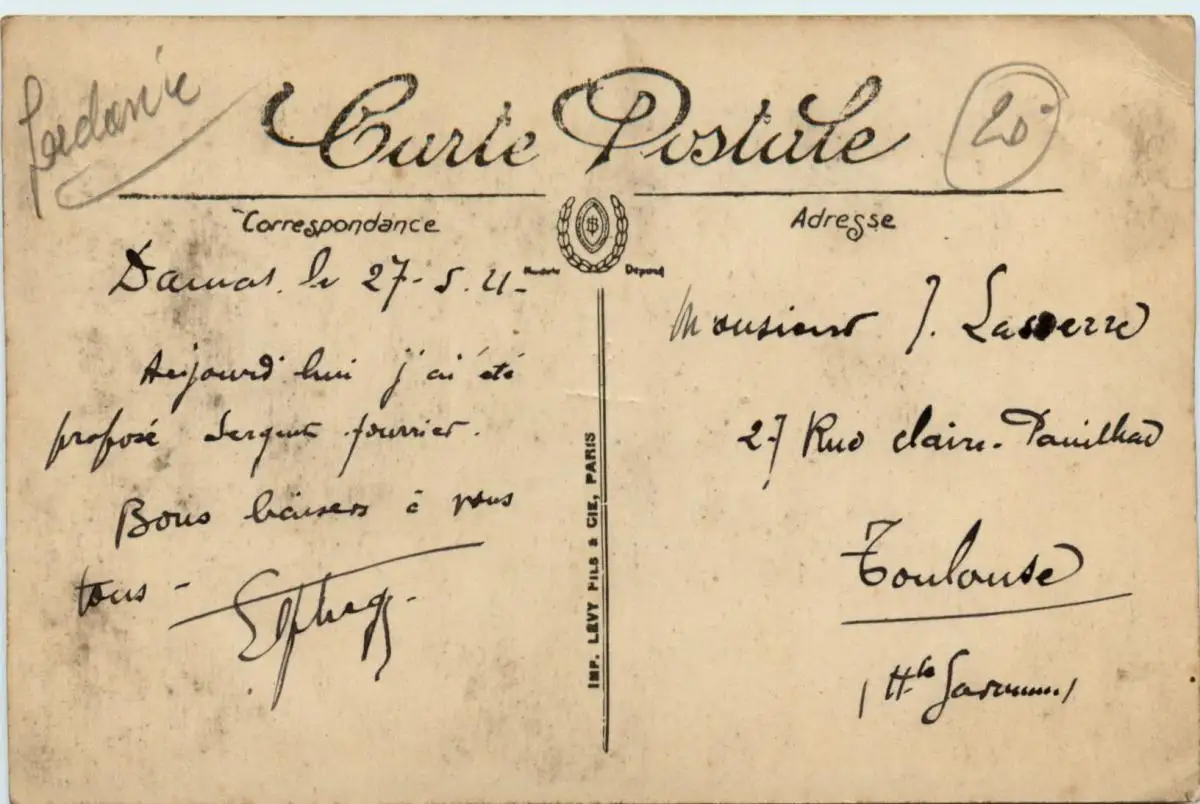 Jordanie
Carte Postale
20
Correspondance
Adresse
Damas, le 27-5.21-
Aujourd'hui j'ai été
proposé Sergent fourrier.
Bons baisers à vous
tous -
Monsieur J. Lasserre
27 Rue Claire-Pauilhac
Toulouse
(Hte Garonne)
IMP. LÉVY FILS & CIE, PARIS
Déposé